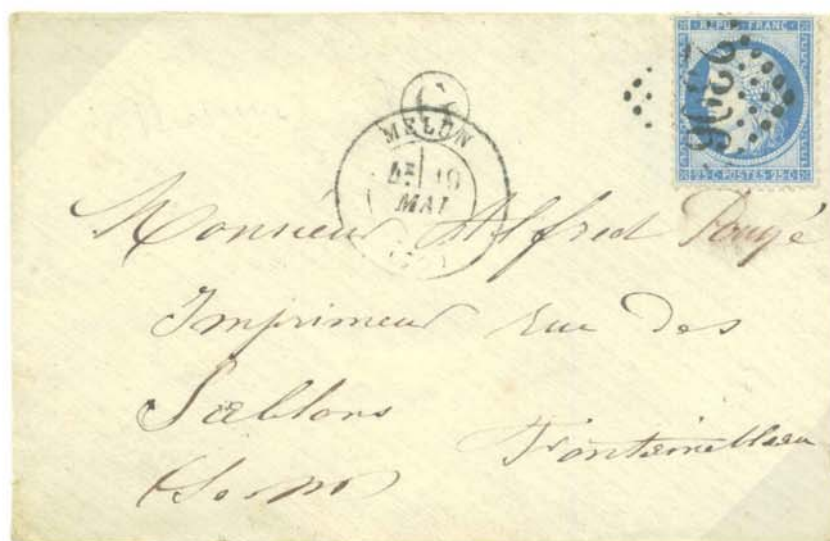 REPUB·FRANC·
2296
25·C·POSTES·25·C·
G
MELUN
4E 19
MAI
Monsieur Alfred Pougé
Imprimeur rue des
Sablons
Fontainebleau